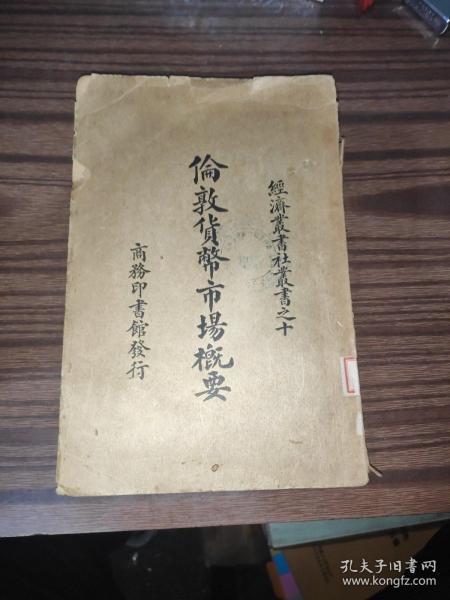 經濟叢書社叢書之十
倫敦貨幣市場概要
商務印書館發行
孔夫子旧书网
www.kongfz.com